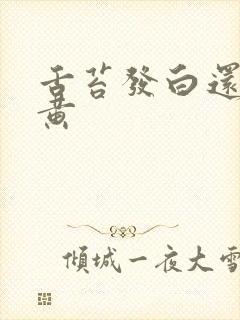 舌苔發白還
黄
傾城一夜大雪